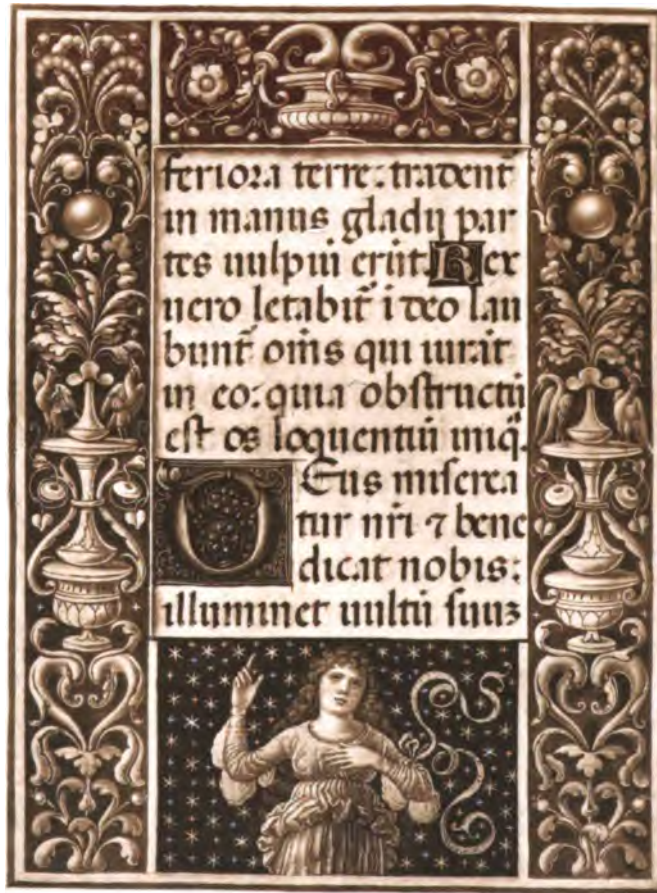 feriora terre: tradent̃
in manus gladij par
tes uulpiũ erũt. Rex
uero letabit̃ i deo lau
bunt̃ om̃s qui iurãt
in eo: quia obstructũ
est os loquentiũ iniq̃.
Deus miserea
tur nr̃i ⁊ bene
dicat nobis:
illuminet uultũ suuʒ